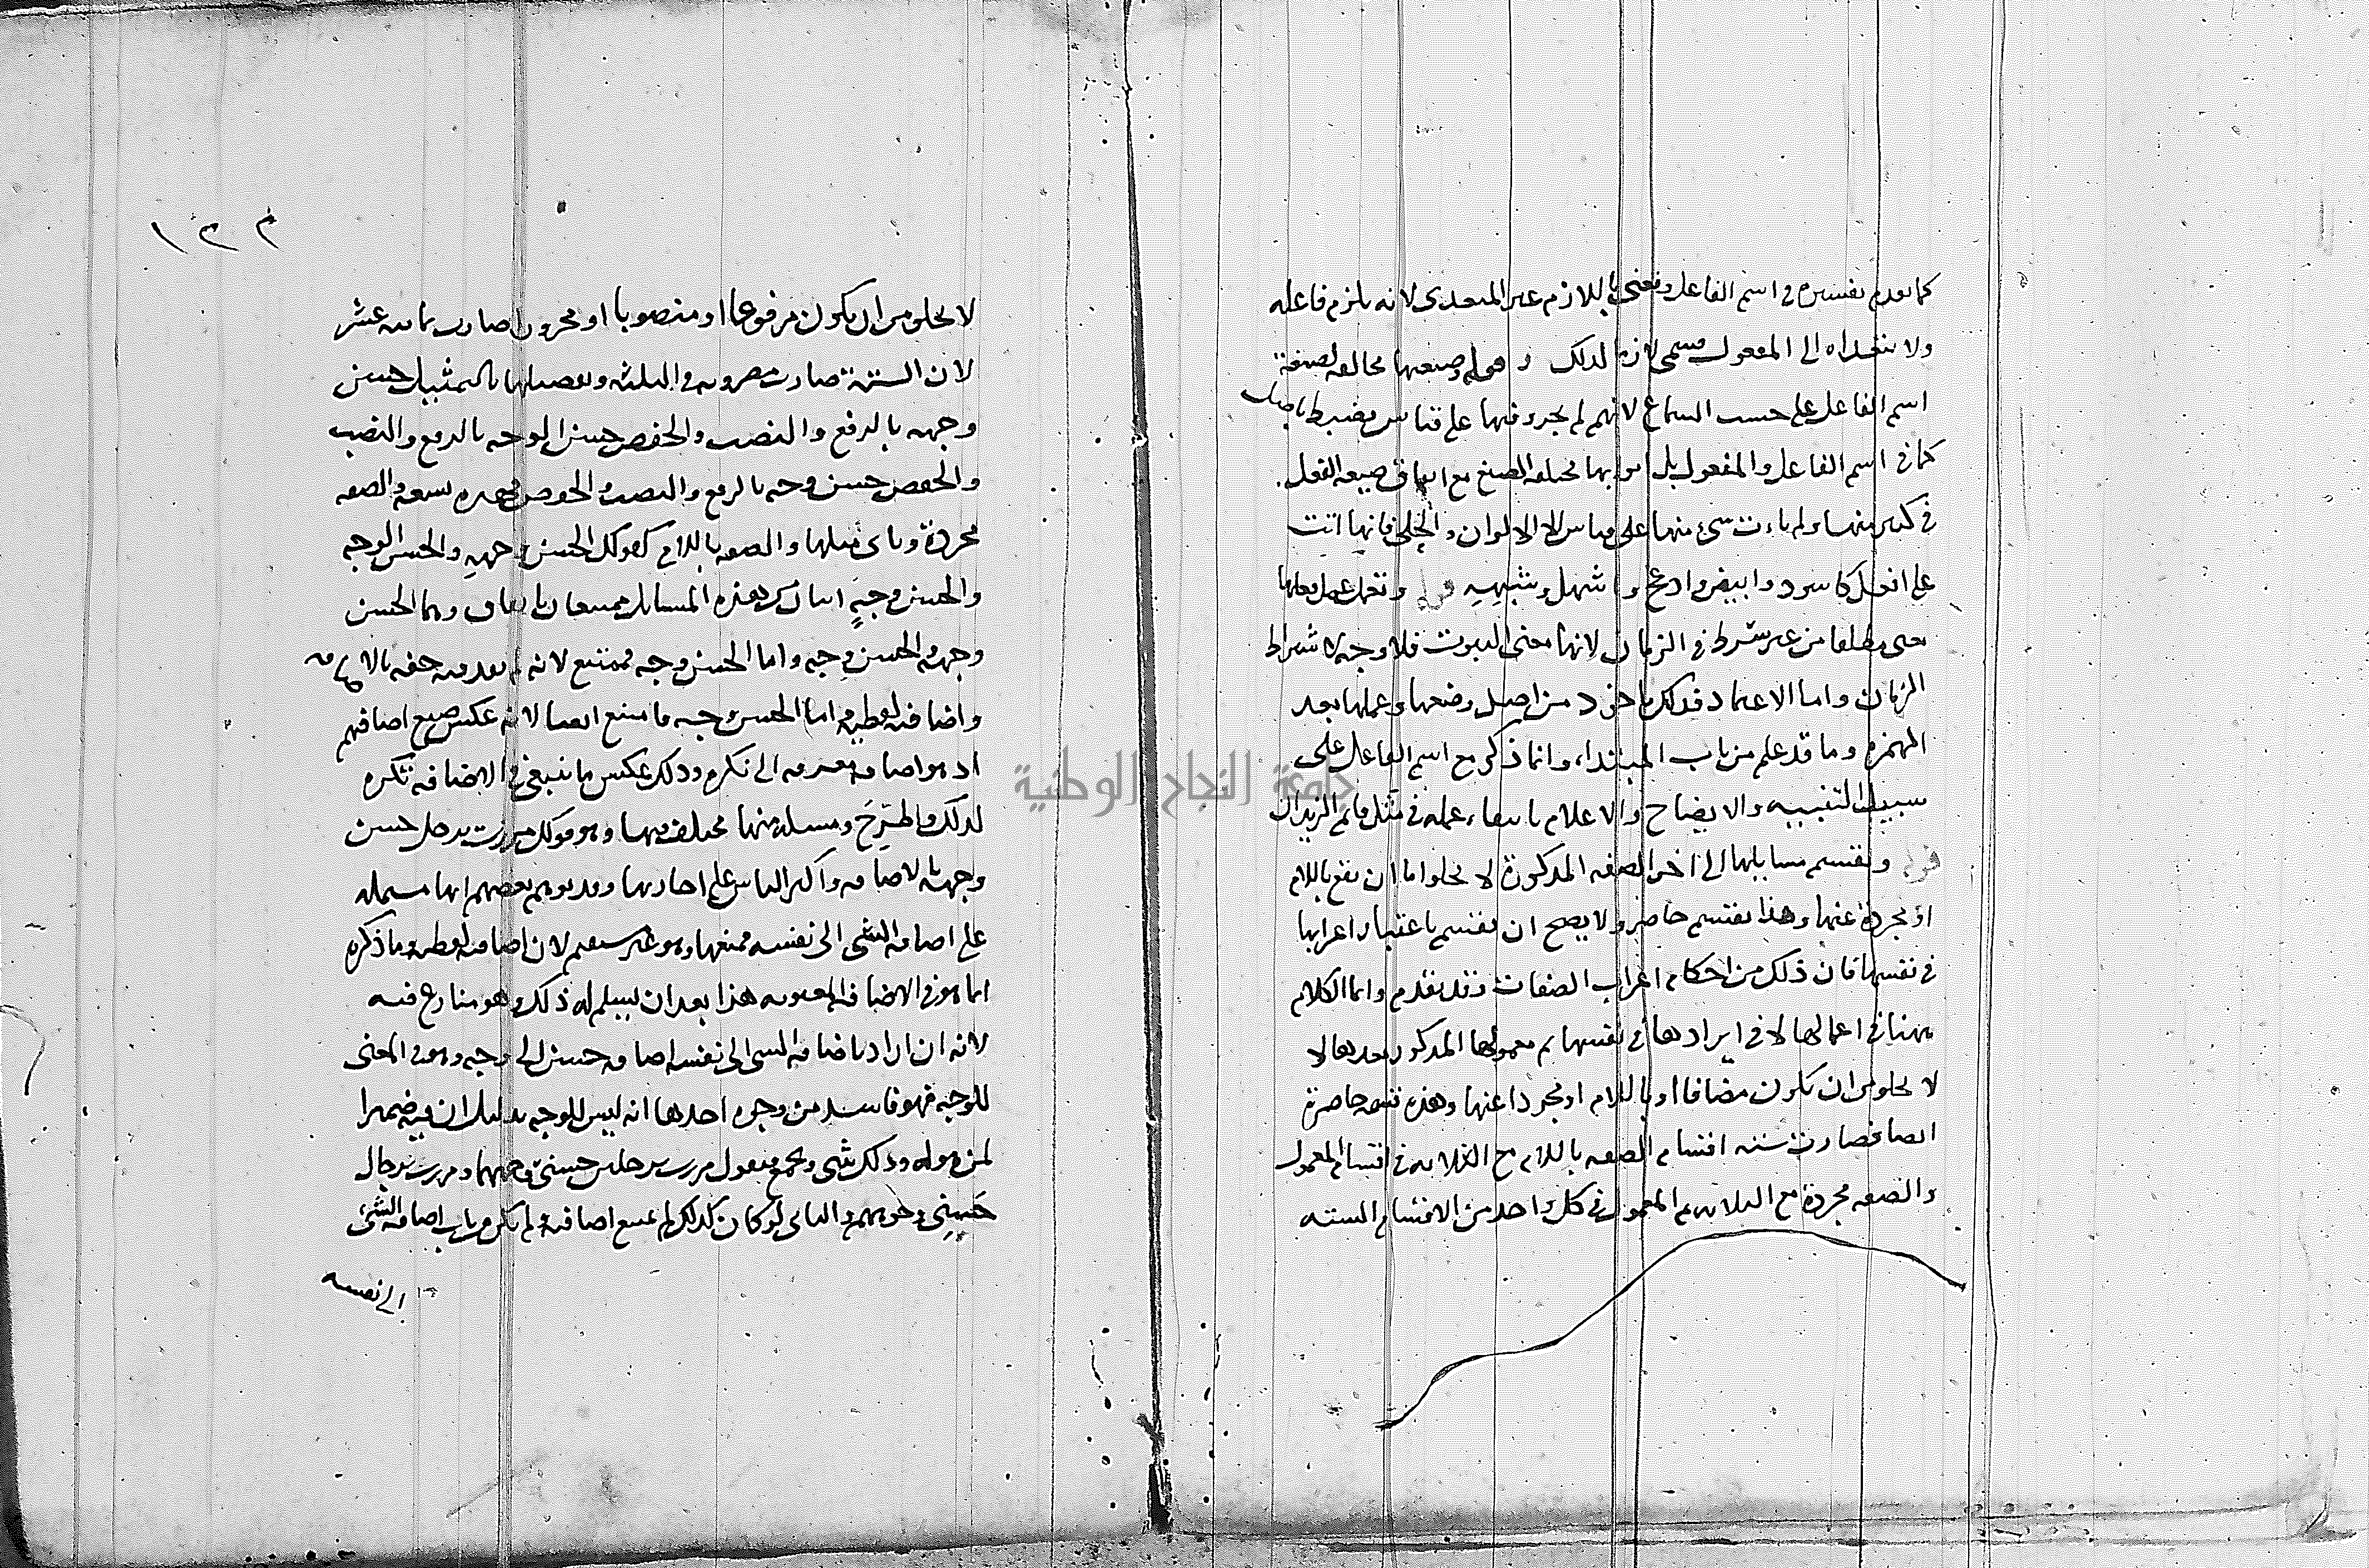 كما تقدم تفسيره في اسم الفاعل ونعني باللازم غير المتعدي لانه يلزم فاعله
ولا يتعداه الى المفعول فسمي لازما لذلك قوله وصيغتها مخالفة لصيغة
اسم الفاعل على حسب السماع لانهم لم يجروا فيها على قياس يضبط باصل
كما في اسم الفاعل والمفعول بل ابوابها مختلفة الصيغ مع اتفاق صيغة الفعل
في كثير منها ولم يات شيء منها على قياس الا الالوان والحلى فانها اتت
على افعل كاسود وابيض وادعج واشهل وشبهه قوله وتعمل عمل فعلها
يعني مطلقا من غير شرط في الزمان لانها معنى الثبوت فلا وجه لاشتراط
الزمان واما الاعتماد فذلك ماخوذ من اصل وضعها وعملها بعد
الهمزة وما قد علم من باب المبتداء وانما ذكر مع اسم الفاعل على
سبيل التنبيه والايضاح والاعلام بانتفاء عمله في مثل قائم الزيدان
قوله وتقسيم مسايلها الى اخره الصفة المذكورة لا يخلوا اما ان تقع باللام
او مجردة عنها وهذا تقسيم حاضر ولا يصح ان تقسم باعتبار اعرابها
في نفسها فان ذلك من احكام اعراب الصفات وقد تقدم وانما الكلام
ههنا في اعمالها لا في ايرادها في نفسها ثم معمولها المذكور بعدها لا
لا يخلو من ان يكون مضافا او باللام او مجردا عنها وهذه قسمة حاصرة
ايضا فصارت ستة اقسام الصفة باللام مع الثلاثة في اقسام المعمول
والصفة مجردة مع الثلاثة ثم المعمول في كل واحد من الاقسام الستة
١٢٢
لا يخلو من ان يكون مرفوعا او منصوبا او مجرورا صارت ثمانية عشر
لان الستة صارت مضروبة في الثلثة وتفصيلها بالتمثيل حسن
وجهه بالرفع والنصب والخفض حسن الوجه بالرفع والنصب
والخفض حسن وجه بالرفع والنصب والخفض فهذه تسعة والصفة
مجردة وباقي مثلها والصفة باللام كقولك الحسن وجهه والحسن الوجه
والحسن وجه اثنان من هذه المسايل ممتنعان باتفاق وهما الحسن
وجهه والحسن وجه واما الحسن وجهه فممتنع لانه لم يفد فيه خفة بالاضافة
واضافته لفظية واما الحسن وجه فامتنع ايضا لانه عكس صيغ اضافتهم
اذ هو اضافة معرفة الى نكرة وذلك عكس ما ينبغي في الاضافة فكره
لذلك واطرح ومسئلة منها مختلف فيها وهو قولك مررت برجل حسن
وجهه بالاضافة واكثر الناس على اجازتها وقد توهم بعضهم انها مشتملة
على اضافة الشى الى نفسه فمنعها وهو غير مستقيم لان اضافته لفظية وما ذكره
انما هو في الاضافة المعنوية هذا بعد ان يسلم له ذلك وهو منازع فيه
لانه ان اراد باضافة الشي الى نفسه اضافة حسن الى وجه وهو في المعنى
للوجه فهو فاسد من وجوه احدها انه ليس للوجه بدليل ان فيه ضميرا
لمن هو له وذلك يثنى ويجمع فيقول مررت برجلين حسني وجههما ومررت برجال
حسني وجوههم والثاني لو كان كذلك لم يمتنع اضافته ولم يكن من باب اضافة الشئ
الى نفسه
جامعة النجاح الوطنية